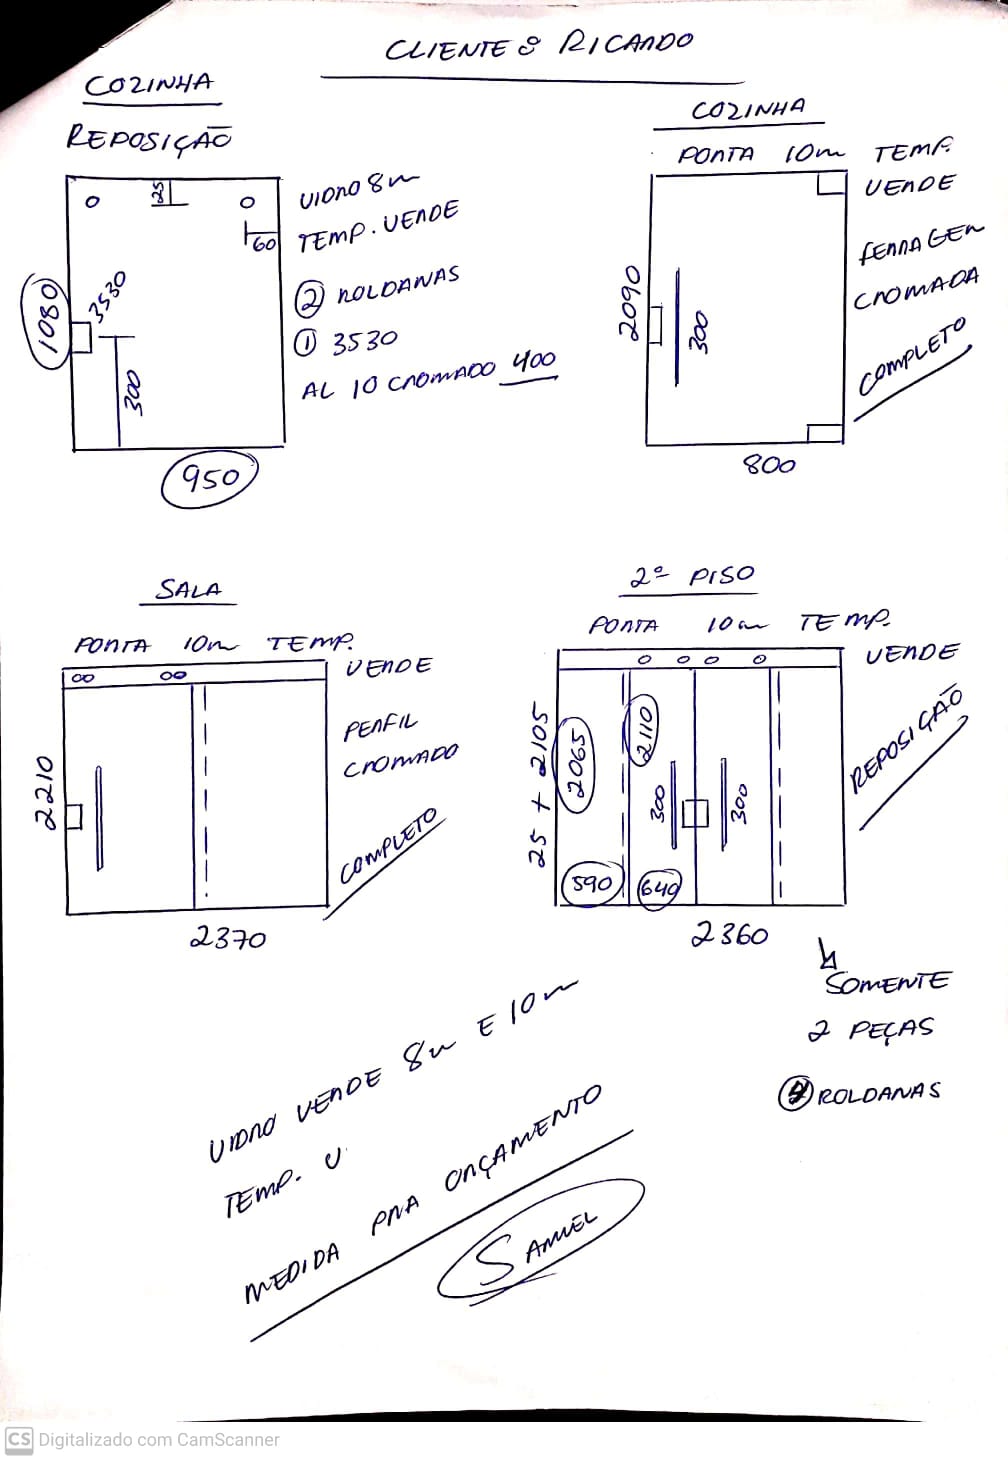 CLIENTE: RICARDO
COZINHA
REPOSIÇÃO
25
60
3530
1080
300
950
VIDRO 8m
TEMP. VERDE
② ROLDANAS
① 3530
AL 10 CROMADO 400
COZINHA
PORTA 10m TEMP.
VERDE
FERRAGEM
CROMADA
COMPLETO
2090
300
800
SALA
PORTA 10m TEMP.
VERDE
PERFIL
CROMADO
COMPLETO
2210
2370
2º PISO
PORTA 10m TEMP.
VERDE
REPOSIÇÃO
25 + 2105
2065
2110
300
300
590
640
2360
SOMENTE
2 PEÇAS
ROLDANAS
VIDRO VERDE 8m E 10m
TEMP. V
MEDIDA PRA ORÇAMENTO
SAMUEL
CS Digitalizado com CamScanner